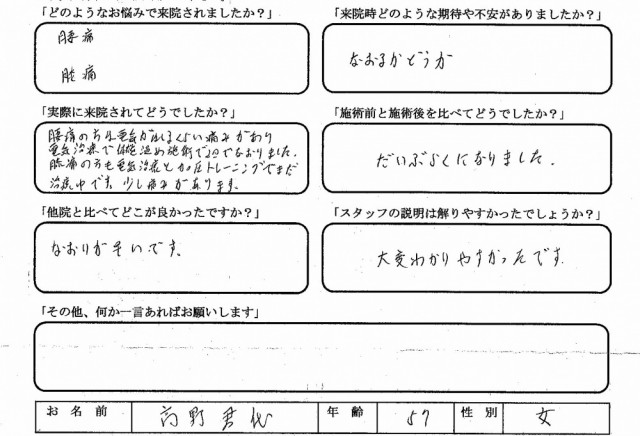 「どのようなお悩みで来院されましたか？」
腰痛
膝痛
「来院時どのような期待や不安がありましたか？」
なおるかどうか
「実際に来院されてどうでしたか？」
腰痛の方は電気が走るくらい痛みがあり
電気治療で体温め施術で2日でなおりました。
膝痛の方も電気治療と加圧トレーニングでまだ
治療中です。少し痛みがあります。
「施術前と施術後を比べてどうでしたか？」
だいぶらくになりました。
「他院と比べてどこが良かったですか？」
なおりが早いです。
「スタッフの説明は解りやすかったでしょうか？」
大変わかりやすかったです。
「その他、何か一言あればお願いします」
お名前 高野君代 年齢 57 性別 女